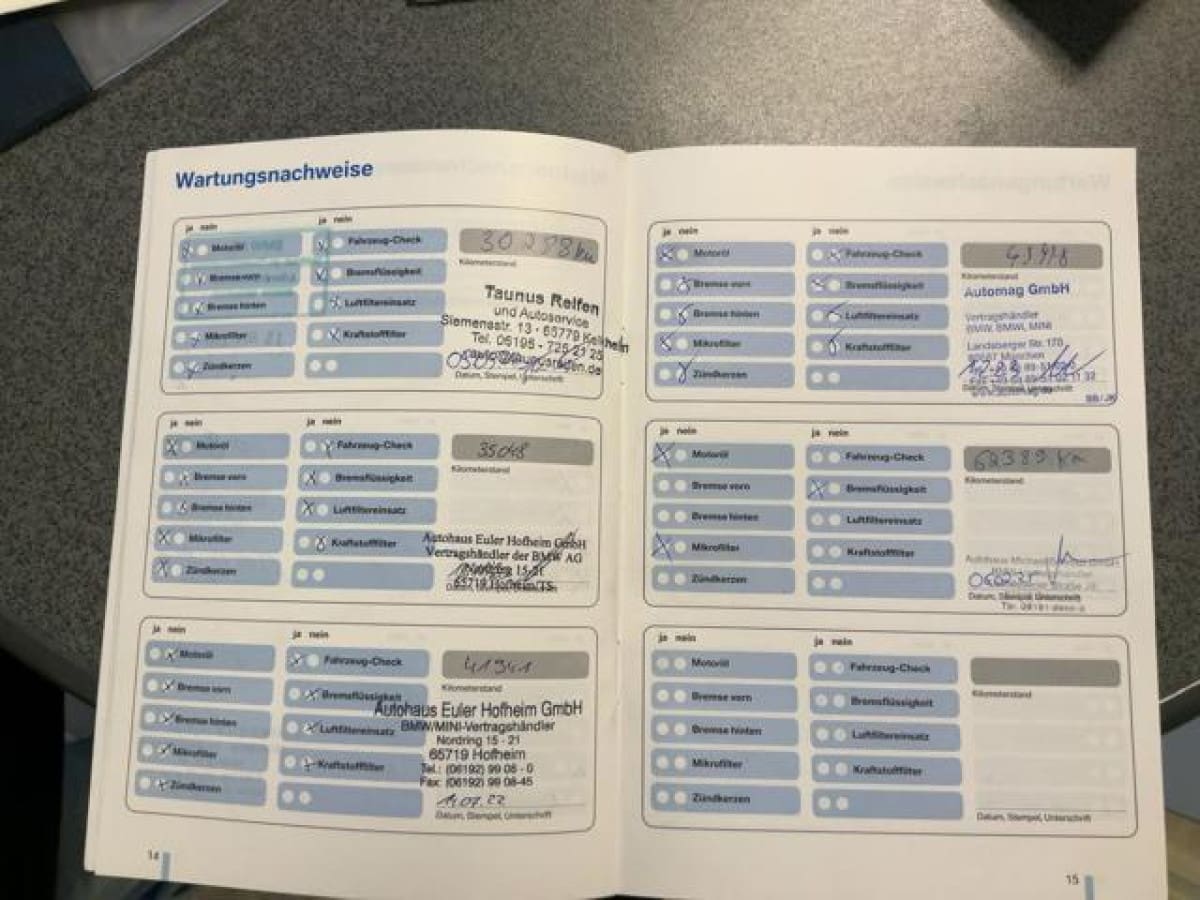 Wartungsnachweise
ja nein
ja nein
Motoröl
Fahrzeug-Check
Bremse vorn
Bremsflüssigkeit
Bremse hinten
Luftfiltereinsatz
Mikrofilter
Kraftstofffilter
Zündkerzen
Kilometerstand
Taunus Reifen
und Autoservice
Siemensstr. 13 · 65779 Kelkheim
Datum, Stempel, Unterschrift
ja nein
ja nein
Motoröl
Fahrzeug-Check
35048
Bremse vorn
Bremsflüssigkeit
Kilometerstand
Bremse hinten
Luftfiltereinsatz
Mikrofilter
Kraftstofffilter
Zündkerzen
Autohaus Euler Hofheim GmbH
Vertragshändler der BMW AG
Nordring 15-21
65719 Hofheim/TS.
ja nein
ja nein
Motoröl
Fahrzeug-Check
41941
Bremse vorn
Bremsflüssigkeit
Kilometerstand
Bremse hinten
Luftfiltereinsatz
Mikrofilter
Kraftstofffilter
Zündkerzen
Autohaus Euler Hofheim GmbH
BMW/MINI-Vertragshändler
Nordring 15 - 21
65719 Hofheim
Tel.: (06192) 99 08 - 0
Fax: (06192) 99 08-45
14.07.22
Datum, Stempel, Unterschrift
14
ja nein
ja nein
Motoröl
Fahrzeug-Check
Bremse vorn
Bremsflüssigkeit
Kilometerstand
Bremse hinten
Luftfiltereinsatz
Mikrofilter
Kraftstofffilter
Zündkerzen
Automag GmbH
Vertragshändler
BMW, BMWi, MINI
Landsberger Str. 170
ja nein
ja nein
Motoröl
Fahrzeug-Check
62389 km
Bremse vorn
Bremsflüssigkeit
Kilometerstand
Bremse hinten
Luftfiltereinsatz
Mikrofilter
Kraftstofffilter
Zündkerzen
Datum, Stempel, Unterschrift
ja nein
ja nein
Motoröl
Fahrzeug-Check
Bremse vorn
Bremsflüssigkeit
Kilometerstand
Bremse hinten
Luftfiltereinsatz
Mikrofilter
Kraftstofffilter
Zündkerzen
Datum, Stempel, Unterschrift
15